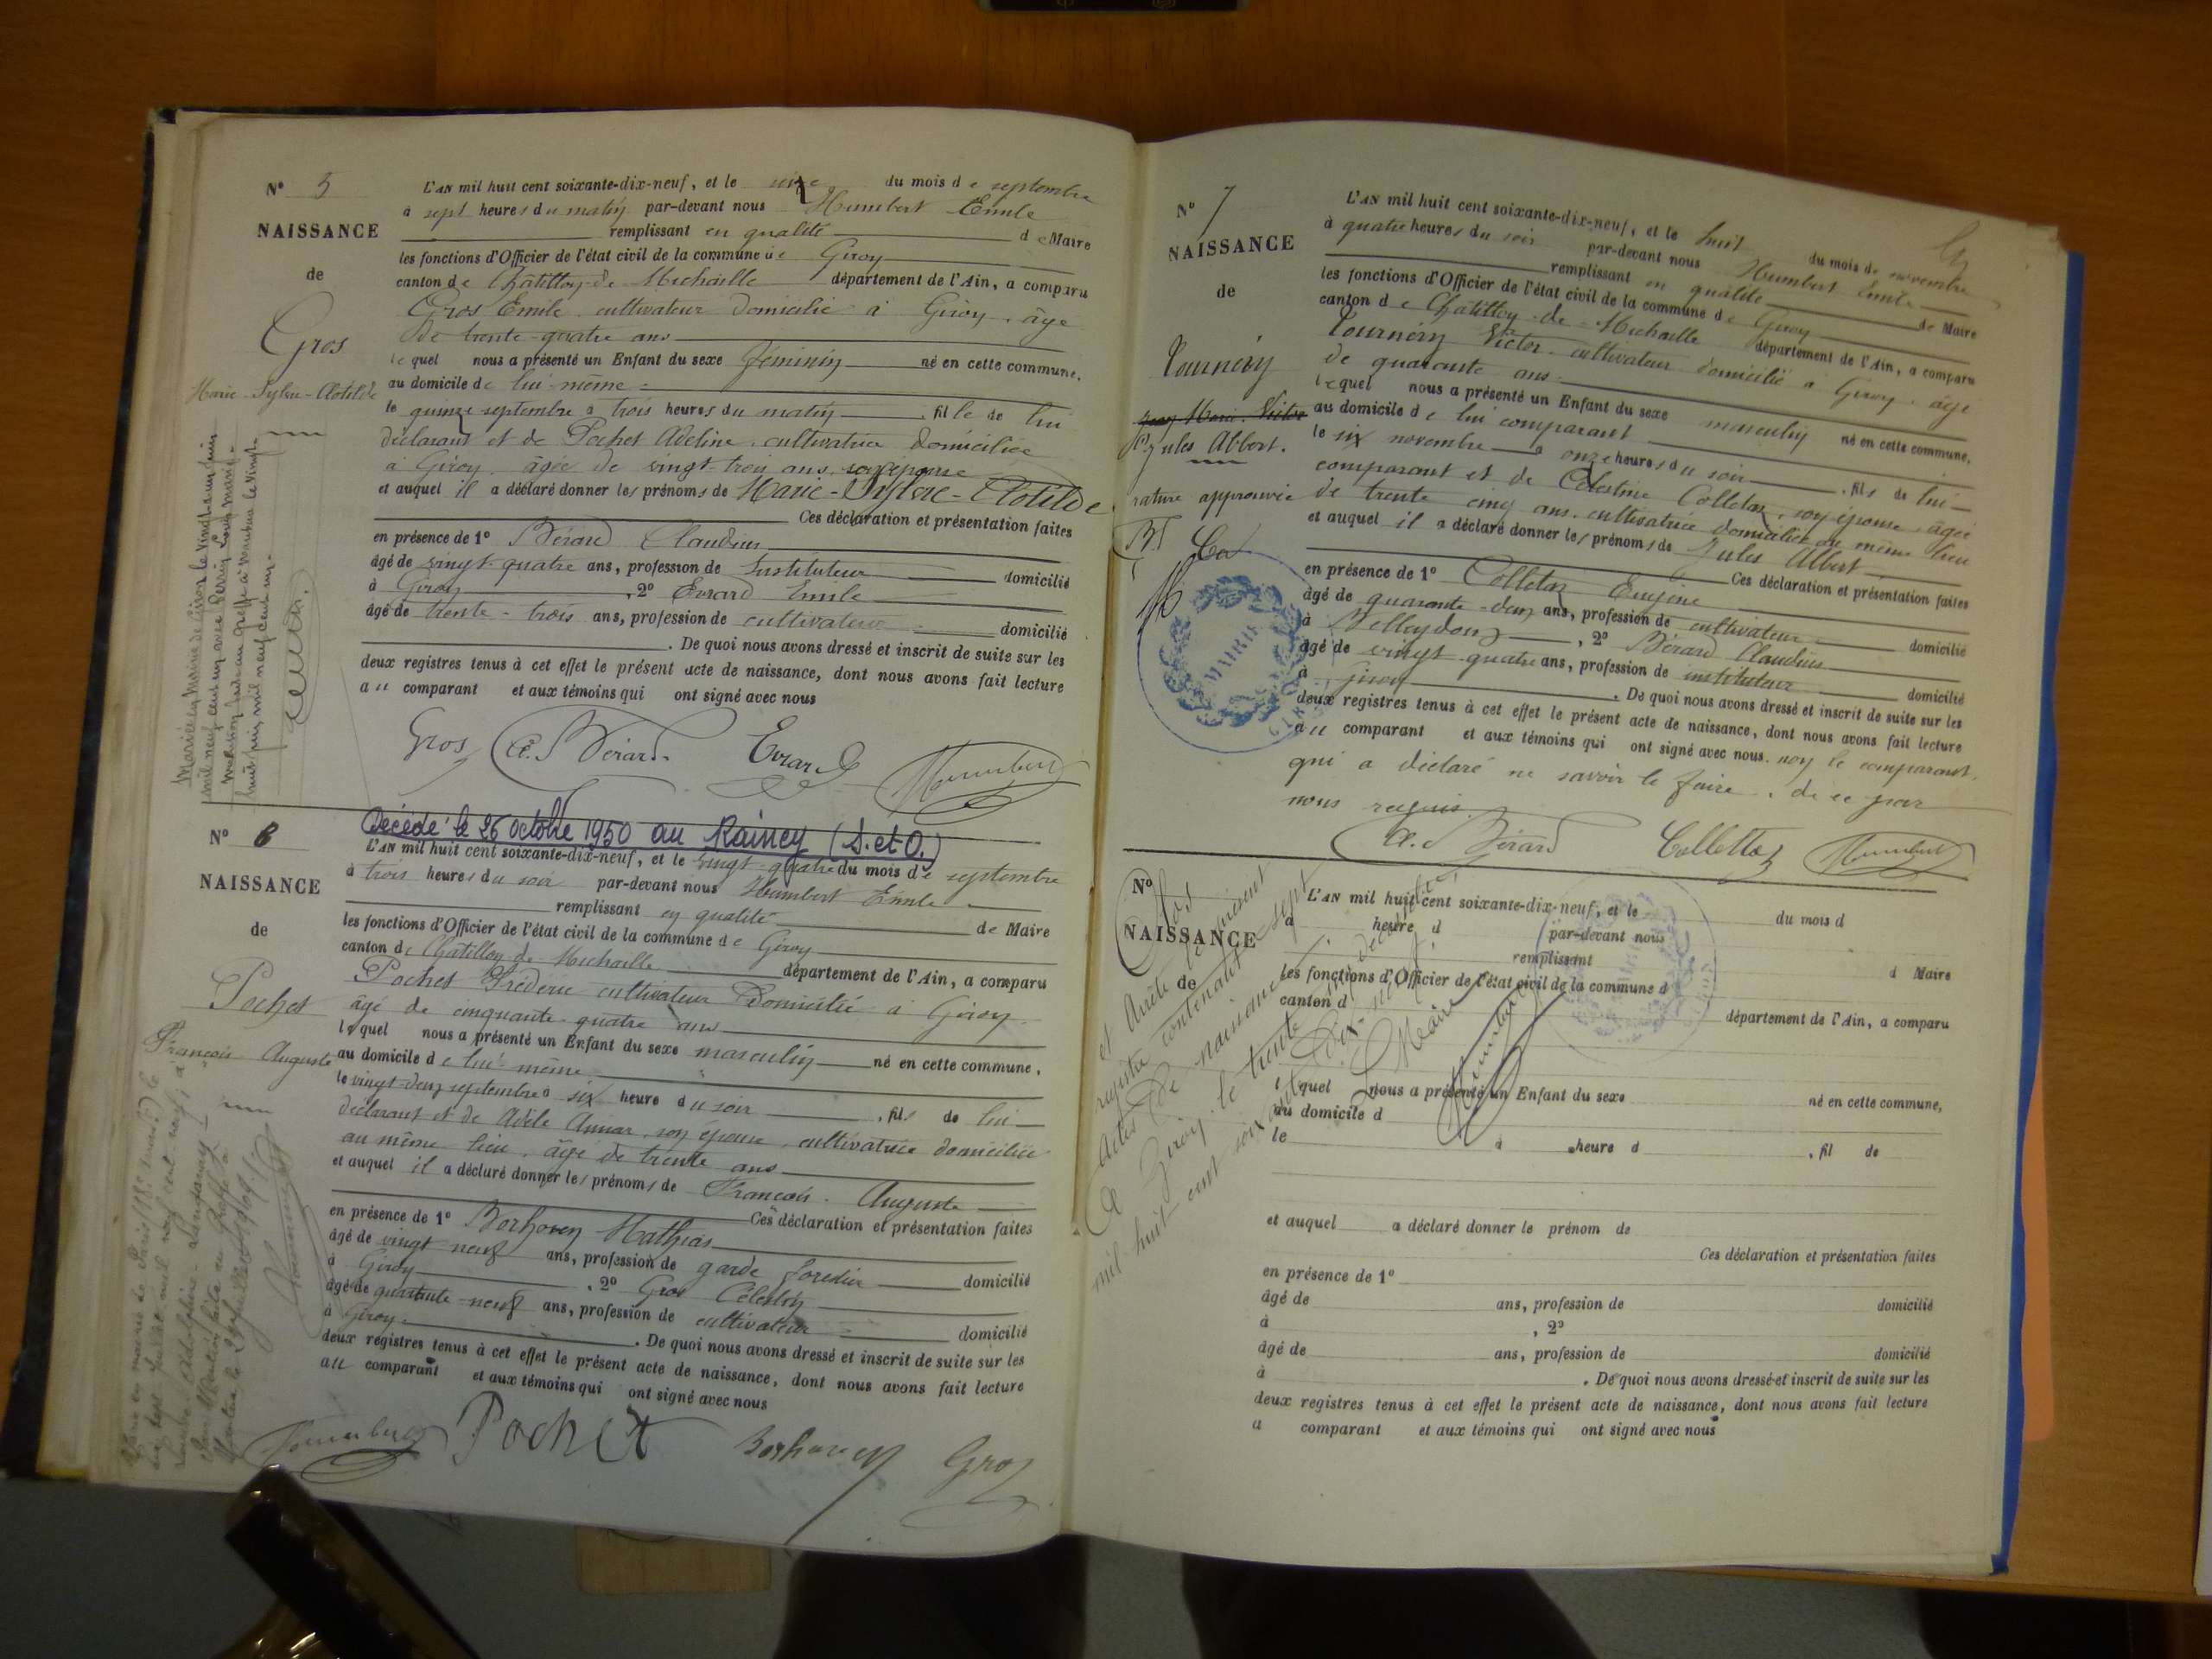 N° 5
NAISSANCE
de
Gros
Marie-Sylvie-Clotilde
L'AN mil huit cent soixante-dix-neuf, et le seize du mois de septembre
à sept heures du matin par-devant nous Humbert Emile
remplissant en qualité de Maire
les fonctions d'Officier de l'état civil de la commune de Giron
canton de Châtillon-de-Michaille département de l'Ain, a comparu
Gros Emile cultivateur domicilié à Giron, âgé
de trente-quatre ans
lequel nous a présenté un Enfant du sexe féminin né en cette commune,
au domicile de lui-même
le quinze septembre à trois heures du matin, fille de lui
déclarant et de Pochet Adeline, cultivatrice domiciliée
à Giron, âgée de vingt-trois ans, son épouse
et auquel il a déclaré donner les prénoms de Marie-Sylvie-Clotilde
Ces déclaration et présentation faites
en présence de 1° Bérard Claudius
âgé de vingt-quatre ans, profession de Instituteur domicilié
à Giron, 2° Evrard Emile
âgé de trente-trois ans, profession de cultivateur domicilié
. De quoi nous avons dressé et inscrit de suite sur les
deux registres tenus à cet effet le présent acte de naissance, dont nous avons fait lecture
au comparant et aux témoins qui ont signé avec nous
Gros Cl. Bérard Evrard Humbert
Décédé le 26 octobre 1950 au Raincy (S.et-O.)
N° 6
NAISSANCE
de
Pochet
François Auguste
L'AN mil huit cent soixante-dix-neuf, et le vingt-quatre du mois de septembre
à trois heures du soir par-devant nous Humbert Emile
remplissant en qualité de Maire
les fonctions d'Officier de l'état civil de la commune de Giron
canton de Châtillon de Michaille département de l'Ain, a comparu
Pochet Fréderic cultivateur Domicilié à Giron
âgé de cinquante-quatre ans
lequel nous a présenté un Enfant du sexe masculin né en cette commune,
au domicile de lui-même
le vingt-deux septembre à six heure du soir, fils de lui
déclarant et de Adèle Annar, son épouse, cultivatrice domiciliée
au même lieu, âgée de trente ans
et auquel il a déclaré donner les prénoms de François Auguste
Ces déclaration et présentation faites
en présence de 1° Borhoven Mathias
âgé de vingt neuf ans, profession de garde forestier domicilié
à Giron, 2° Gros Célestin
âgé de quarante-neuf ans, profession de cultivateur domicilié
à Giron. De quoi nous avons dressé et inscrit de suite sur les
deux registres tenus à cet effet le présent acte de naissance, dont nous avons fait lecture
au comparant et aux témoins qui ont signé avec nous
Humbert Pochet Borhoven Gros
N° 7
NAISSANCE
de
Tournéry
Jules Albert.
rature approuvée
L'AN mil huit cent soixante-dix-neuf, et le huit du mois de novembre
à quatre heures du soir par-devant nous Humbert Emile
remplissant en qualité de Maire
les fonctions d'Officier de l'état civil de la commune de Giron
canton de Châtillon-de-Michaille département de l'Ain, a comparu
Tournéry Victor cultivateur domicilié à Giron, âgé
de quarante ans
lequel nous a présenté un Enfant du sexe masculin né en cette commune,
au domicile de lui comparant
le six novembre à onze heures du soir, fils de lui
comparant et de Célestine Colletaz, son épouse, âgée
de trente cinq ans, cultivatrice domiciliée au même lieu
et auquel il a déclaré donner les prénoms de Jules Albert
Ces déclaration et présentation faites
en présence de 1° Colletaz Eugène
âgé de quarante-deux ans, profession de cultivateur domicilié
à Belleydoux, 2° Bérard Claudius
âgé de vingt quatre ans, profession de instituteur domicilié
à Giron. De quoi nous avons dressé et inscrit de suite sur les
deux registres tenus à cet effet le présent acte de naissance, dont nous avons fait lecture
au comparant et aux témoins qui ont signé avec nous, non le comparant
qui a déclaré ne savoir le faire, de ce par
nous requis.
Cl. Bérard Colletaz Humbert
MAIRIE
Clos et Arrêté le présent
registre contenant sept
actes de naissances.
A Giron, le trente
mil huit cent soixante dix-neuf.
Le Maire
Humbert
N°
NAISSANCE
de
L'AN mil huit cent soixante-dix-neuf, et le du mois d
à heure d par-devant nous
remplissant d Maire
les fonctions d'Officier de l'état civil de la commune d
canton d département de l'Ain, a comparu
l quel nous a présenté un Enfant du sexe né en cette commune,
au domicile d
le à heure d , fil de
et auquel a déclaré donner le prénom de
Ces déclaration et présentation faites
en présence de 1°
âgé de ans, profession de domicilié
à , 2°
âgé de ans, profession de domicilié
à . De quoi nous avons dressé et inscrit de suite sur les
deux registres tenus à cet effet le présent acte de naissance, dont nous avons fait lecture
a comparant et aux témoins qui ont signé avec nous